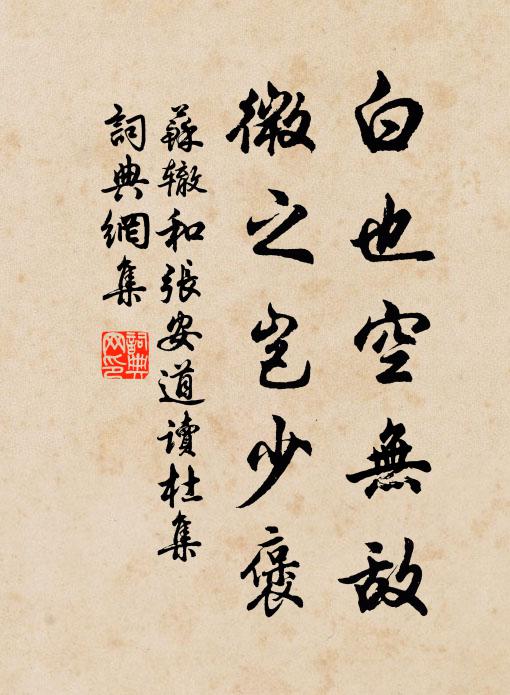 白也空無敵
微之豈少褒
蘇轍和張安道讀杜集
詞典網集
詞典網印